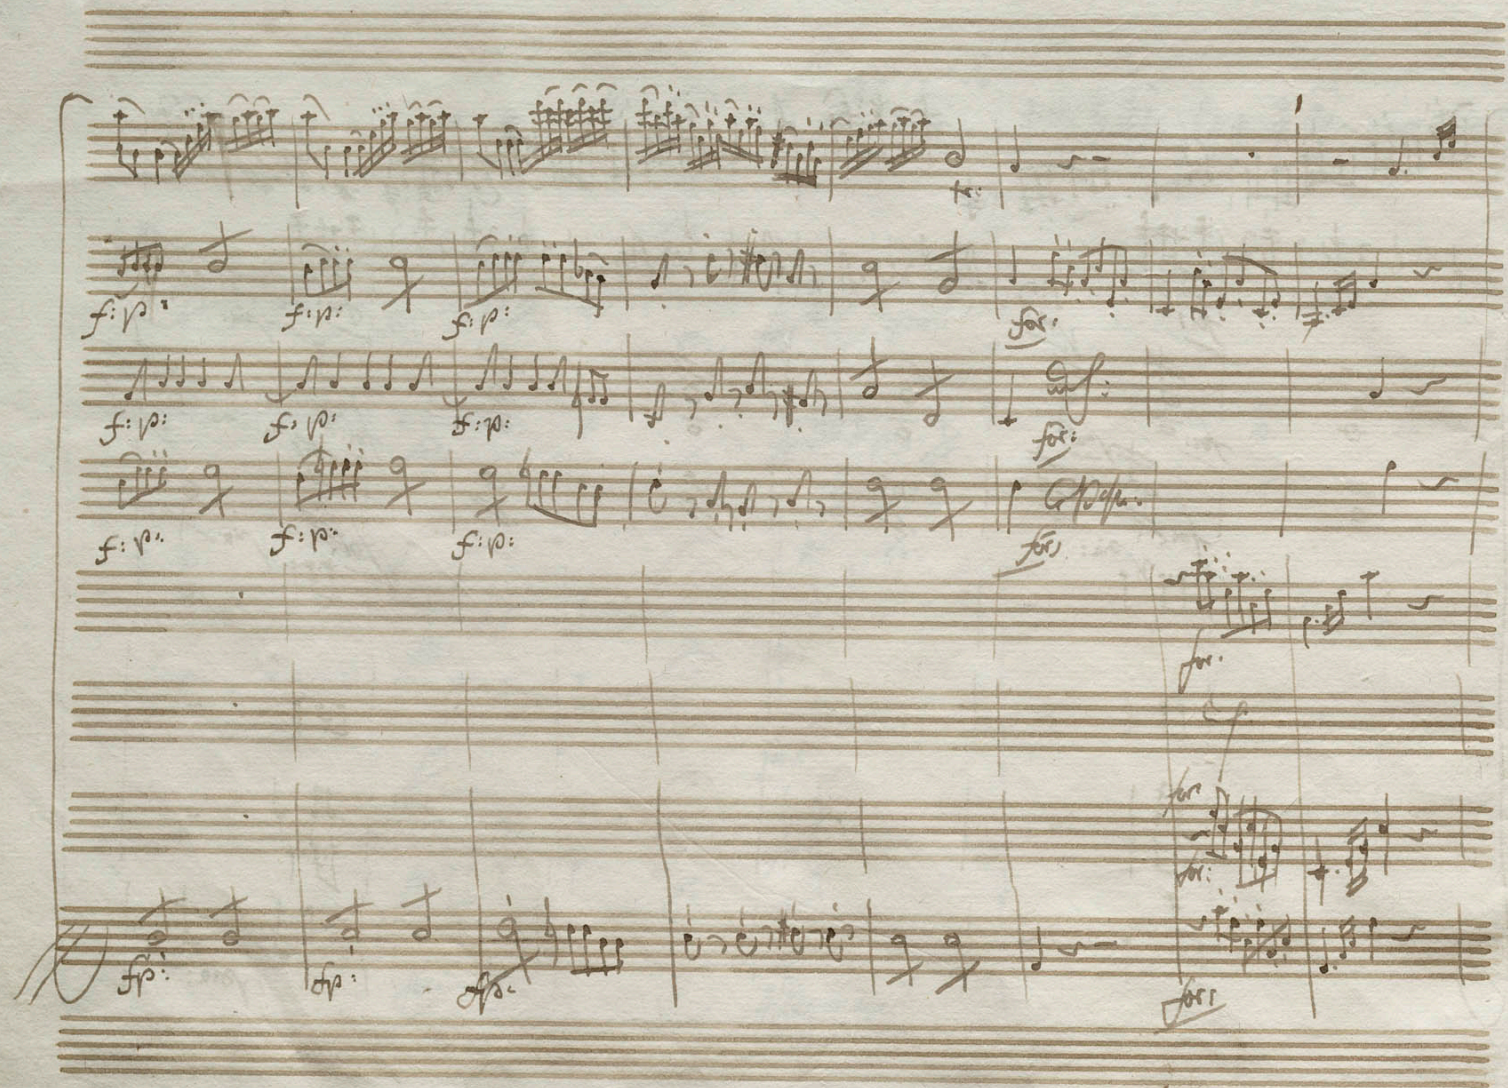 tr:
f: p: f: p: f: p: for:
f: p: f: p: f: p: for:
f: p: f: p: f: p: for:
for:
for:
for:
fp: fp: fp: for: